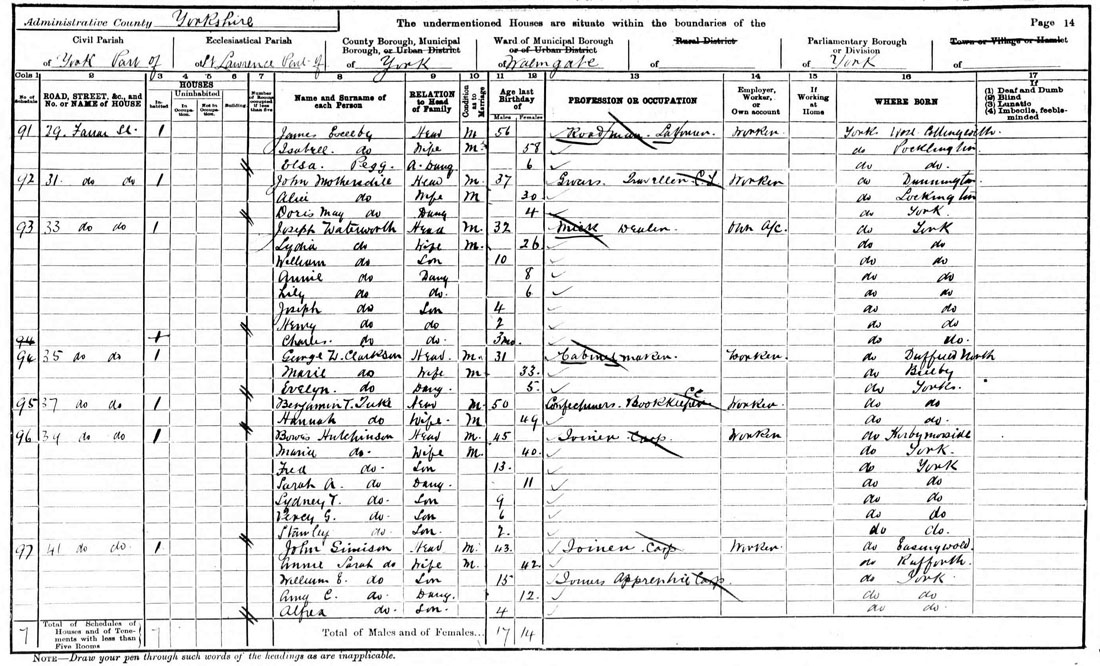 Administrative County Yorkshire The undermentioned Houses are situate within the boundaries of the Page 14
Civil Parish Ecclesiastical Parish County Borough, Municipal Borough, or Urban District Ward of Municipal Borough or of Urban District Rural District Parliamentary Borough or Division Town or Village or Hamlet
of York Part of of St Lawrence Part of of York of Walmgate of of York of
Cols 1 2 3 4 5 6 7 8 9 10 11 12 13 14 15 16 17
No. of Schedule ROAD, STREET, &c., and No. or NAME of HOUSE HOUSES Inhabited Uninhabited In Occupation Not in Occupation Building Number of Rooms occupied if less than five Name and Surname of each Person RELATION to Head of Family Condition as to Marriage Age last Birthday of Males Females PROFESSION OR OCCUPATION Employer, Worker, or Own account If Working at Home WHERE BORN If (1) Deaf and Dumb (2) Blind (3) Lunatic (4) Imbecile, feeble-minded
91 29. Farrar St. 1 James Head M 56 Roadman Worker York
Isabell do Wife M 58 do Pocklington
Elsa Pegg A. Daug 6 do do.
92 31. do do 1 John Head M. 37 Traveller Worker do Dunnington
Alice do Wife M 30 do Lockington
Doris May do Daug 4 do York.
93 33 do do 1 Joseph Waterworth Head M. 32 Dealer Own A/c. do York
Lydia do Wife M. 26 do do
William do Son 10 do do
Annie do Daug 8 do do
Lily do do. 6 do do
Joseph do Son 4 do do
Henry do do 2 do do
94 1 Charles do do. 3mo. do do.
94 35 do do 1 George W. Clarkson Head. M. 31 Cabinet maker. Worker do Duffield North
Marie do Wife M 33. do
Evelyn. do Daug. 5. do Yorks.
95 37 do do 1 Benjamin T. Tuke Head M. 50 Confectioners Bookkeeper Worker do do
Hannah do Wife. M 49 do do.
96 39 do do 1 Bowes Hutchinson Head M. 45 Joiner Carp Worker do Kirbymoorside
Maria do. Wife M. 40. do York.
Fred do. Son 13. do York
Sarah A. do Daug. 11 do do
Sydney T. do Son 9 do do
Percy G. do Son 6 do do
Stanley do Son. 2. do do.
97 41 do do. 1 John Simison Head M. 43. Joiner Carp Worker do Easingwold.
Annie Sarah do Wife M. 42. do Rufforth.
William E. do Son 15 Joiners Apprentice Carp do York.
Amy E. do Daug. 12. do do
Alfred do. Son. 4 do do.
7 Total of Schedules of Houses and of Tenements with less than Five Rooms 7 Total of Males and of Females... 17 14
NOTE—Draw your pen through such words of the headings as are inapplicable.